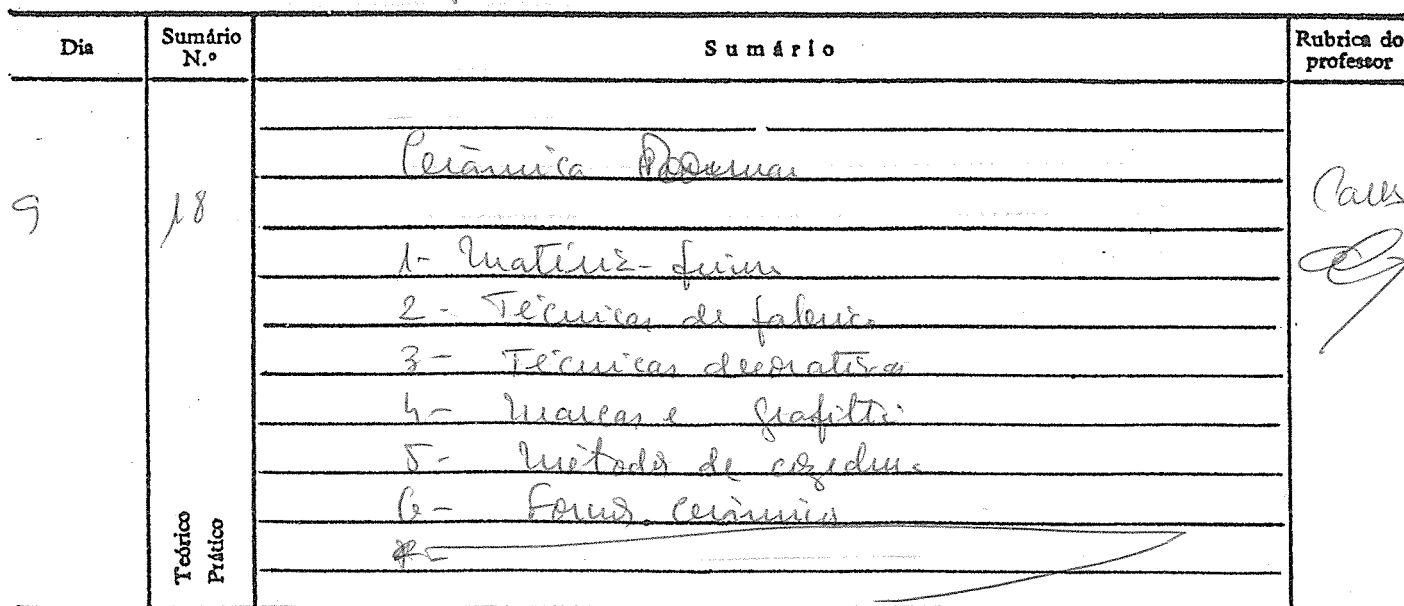 Dia
Sumário N.º
Sumário
Rubrica do professor
Cerâmica
9
18
1- Matéria-prima
2- Técnicas de fabrico
3- Técnicas decorativas
4- Marcas e grafitti
5- Métodos de cozedura
6- Fornos cerâmicos
Teórico
Prático